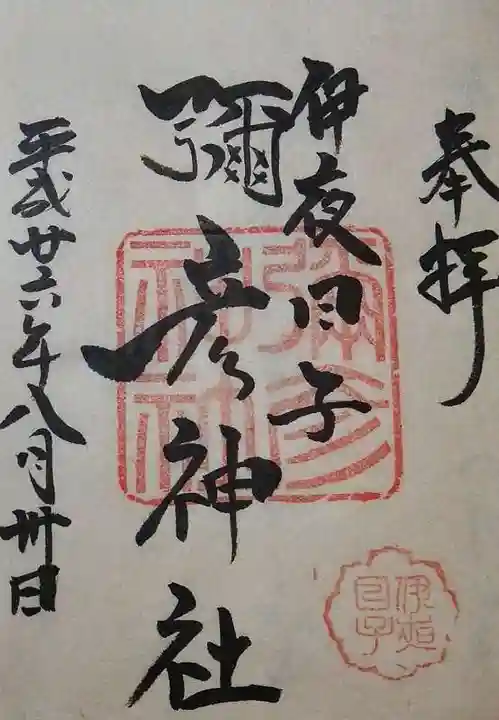 奉拝
伊夜日子
彌彦神社
平成廿六年八月卅日
彌彦
神社
伊夜
日子